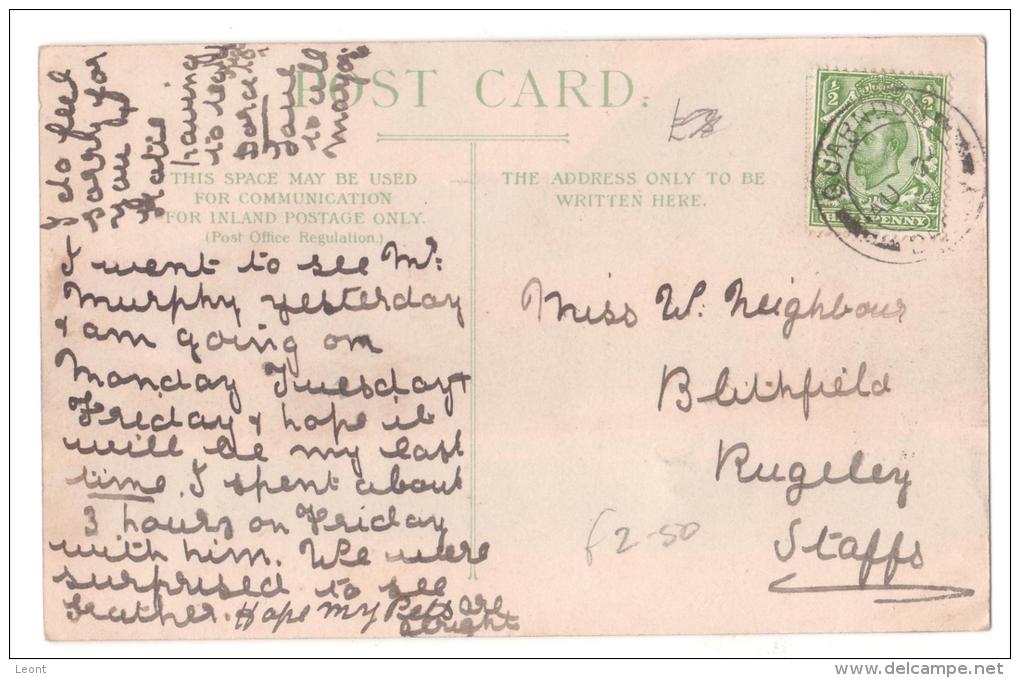 POST CARD.
THIS SPACE MAY BE USED
FOR COMMUNICATION
FOR INLAND POSTAGE ONLY.
(Post Office Regulation.)
THE ADDRESS ONLY TO BE
WRITTEN HERE.
I do feel
sorry for
you
Katie
having
to
to
I went to see Mr:
Murphy yesterday
+ am going on
Monday Tuesday +
Friday + hope it
will be my last
time. I spent about
3 hours on Friday
with him. We were
surprised to see
Feather. Hope My Pets are
alright
Miss W. Neighbour
Blithfield
Rugeley
Staffs
£2-50
1/2
1/2
PENNY
Leont
www.delcampe.net